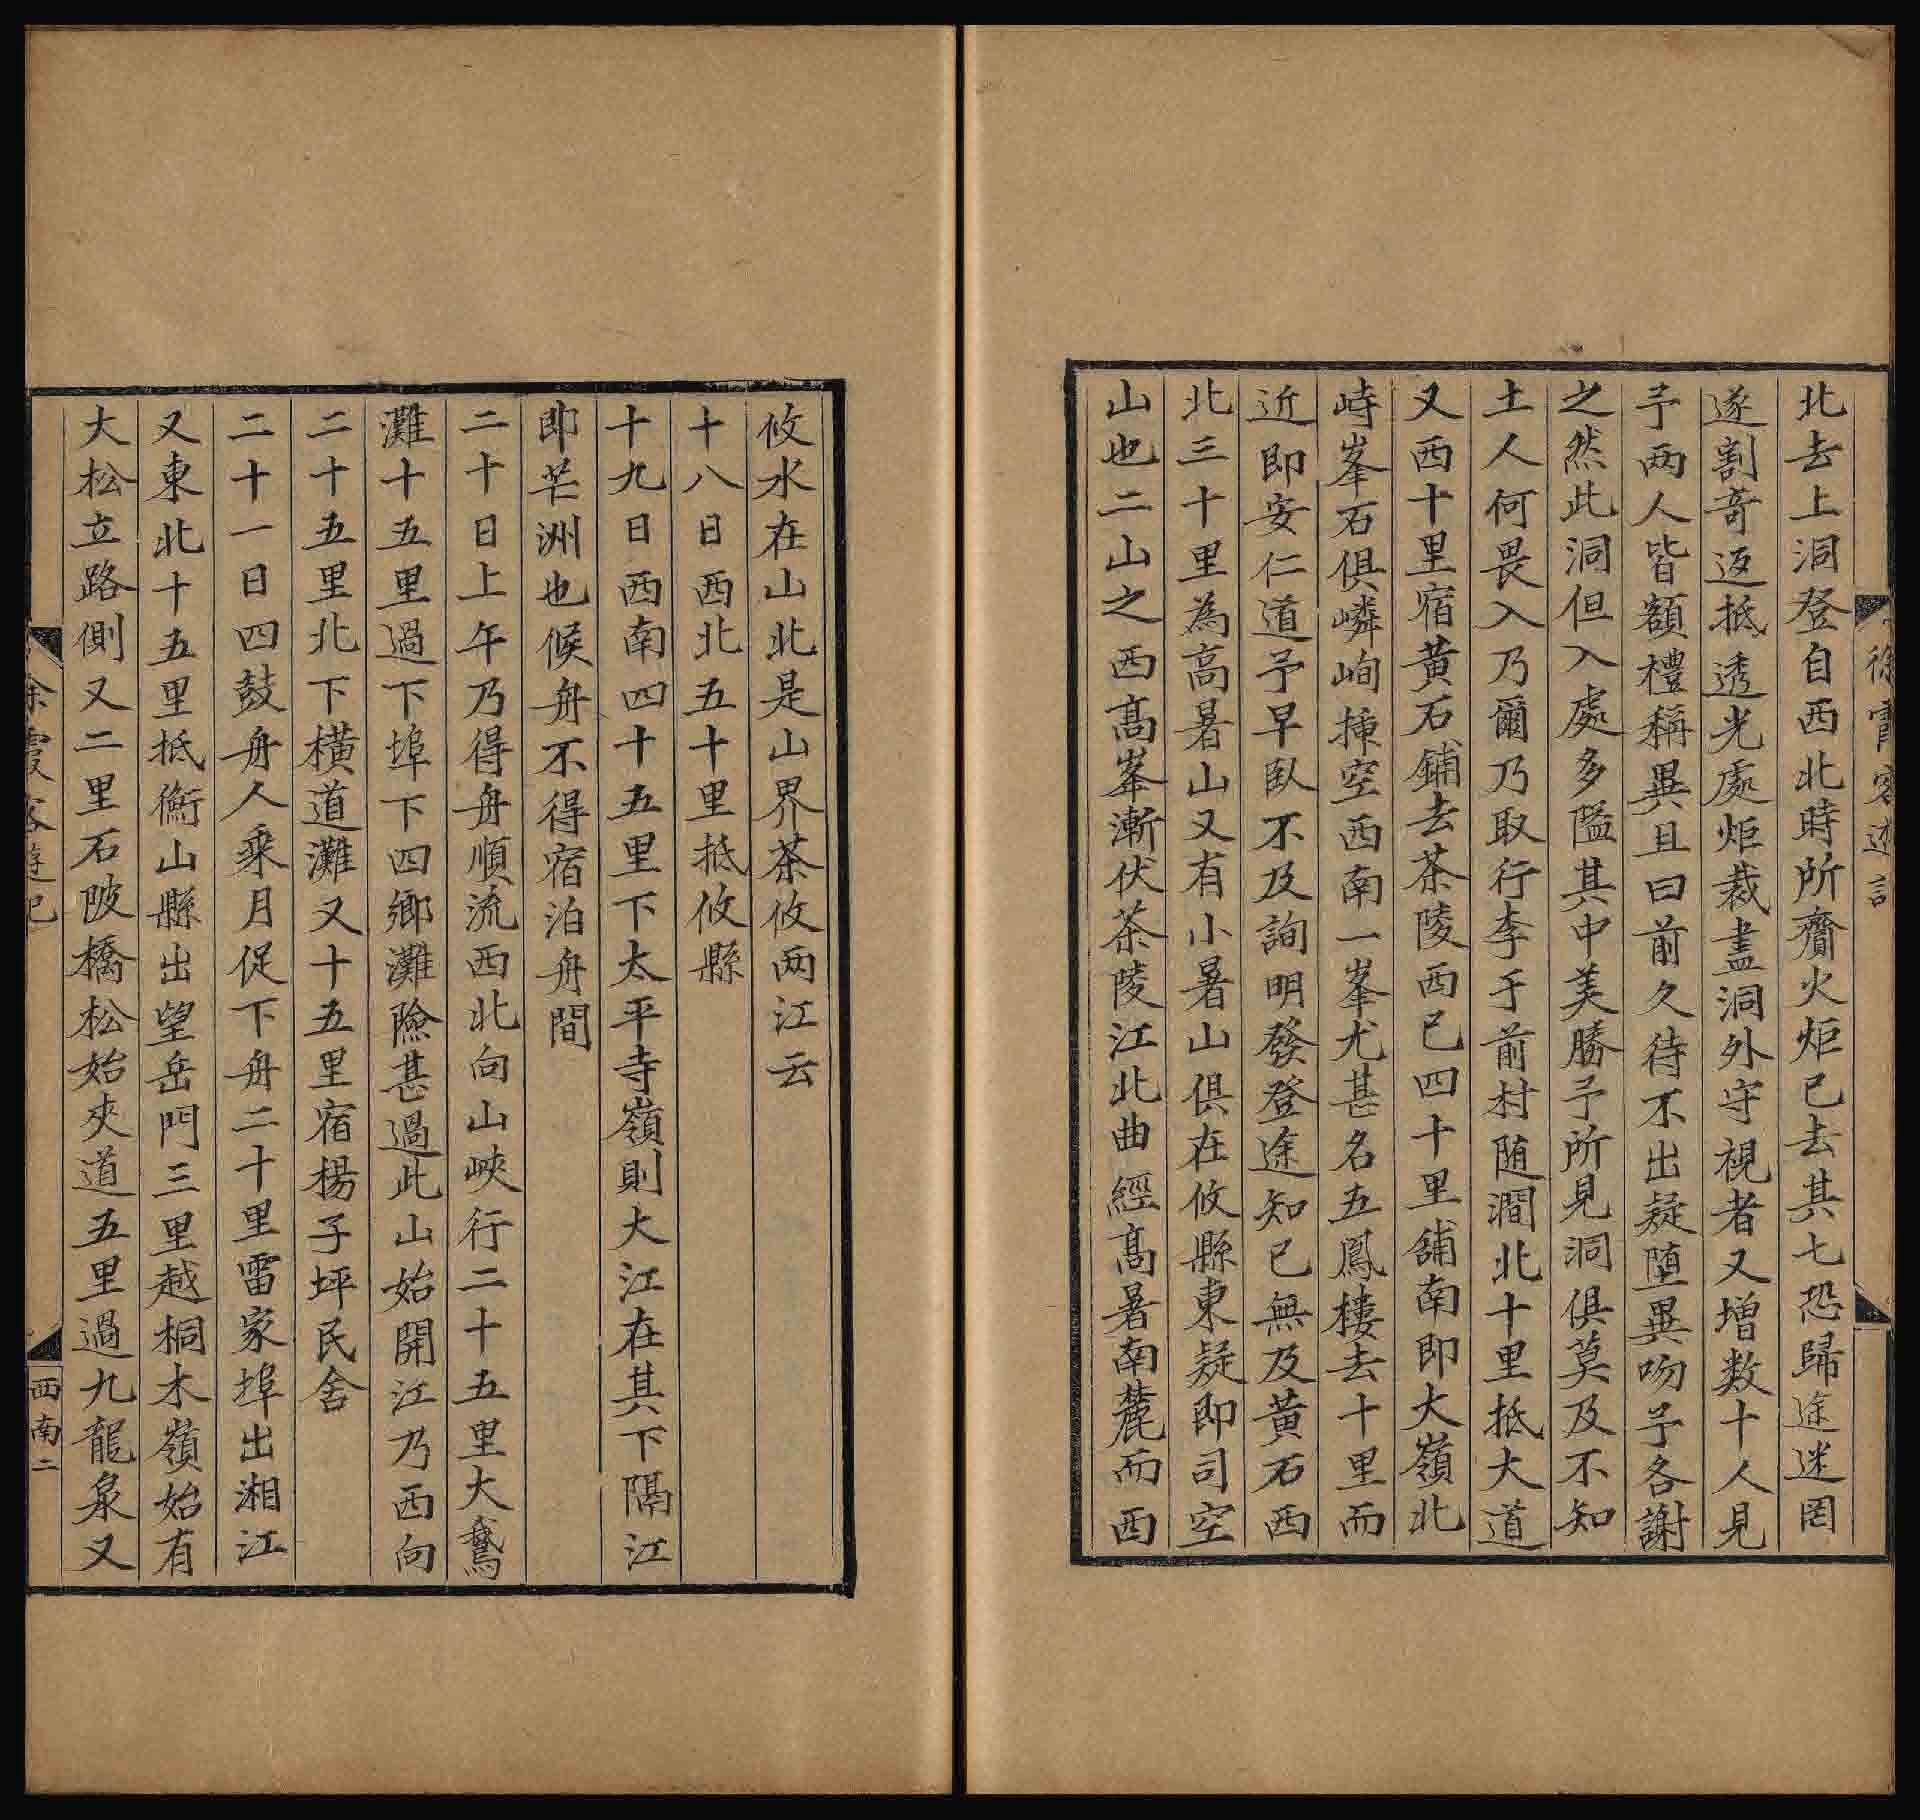 徐霞客遊記
北去上洞登自西北時所齎火炬已去其七恐歸途迷罔
遂割竒返抵透光處炬裁盡洞外守視者又增数十人見
予两人皆額禮稱異且曰前久待不出疑堕異吻予各謝
之然此洞但入處多隘其中美勝予所見洞俱莫及不知
土人何畏入乃爾乃取行李于前村随澗北十里抵大道
又西十里宿黄石鋪去茶陵西已四十里鋪南即大嶺北
峙峯石俱嶙峋揷空西南一峯尤甚名五鳳樓去十里而
近即安仁道予早臥不及詢明發登途知已無及黄石西
北三十里為高暑山又有小暑山俱在攸縣東疑即司空
山也二山之西髙峯漸伏茶陵江北曲經髙暑南麓而西
攸水在山北是山界茶攸两江云
十八日西北五十里抵攸縣
十九日西南四十五里下太平寺嶺則大江在其下隔江
即芒洲也候舟不得宿泊舟間
二十日上午乃得舟順流西北向山峽行二十五里大鵞
灘十五里過下埠下四鄉灘險甚過此山始開江乃西向
二十五里北下横道灘又十五里宿楊子坪民舍
二十一日四鼓舟人乘月促下舟二十里雷家埠出湘江
又東北十五里抵衡山縣出望岳門三里越桐木嶺始有
大松立路側又二里石陂橋松始夾道五里過九龍泉又
徐霞客遊記
西南二